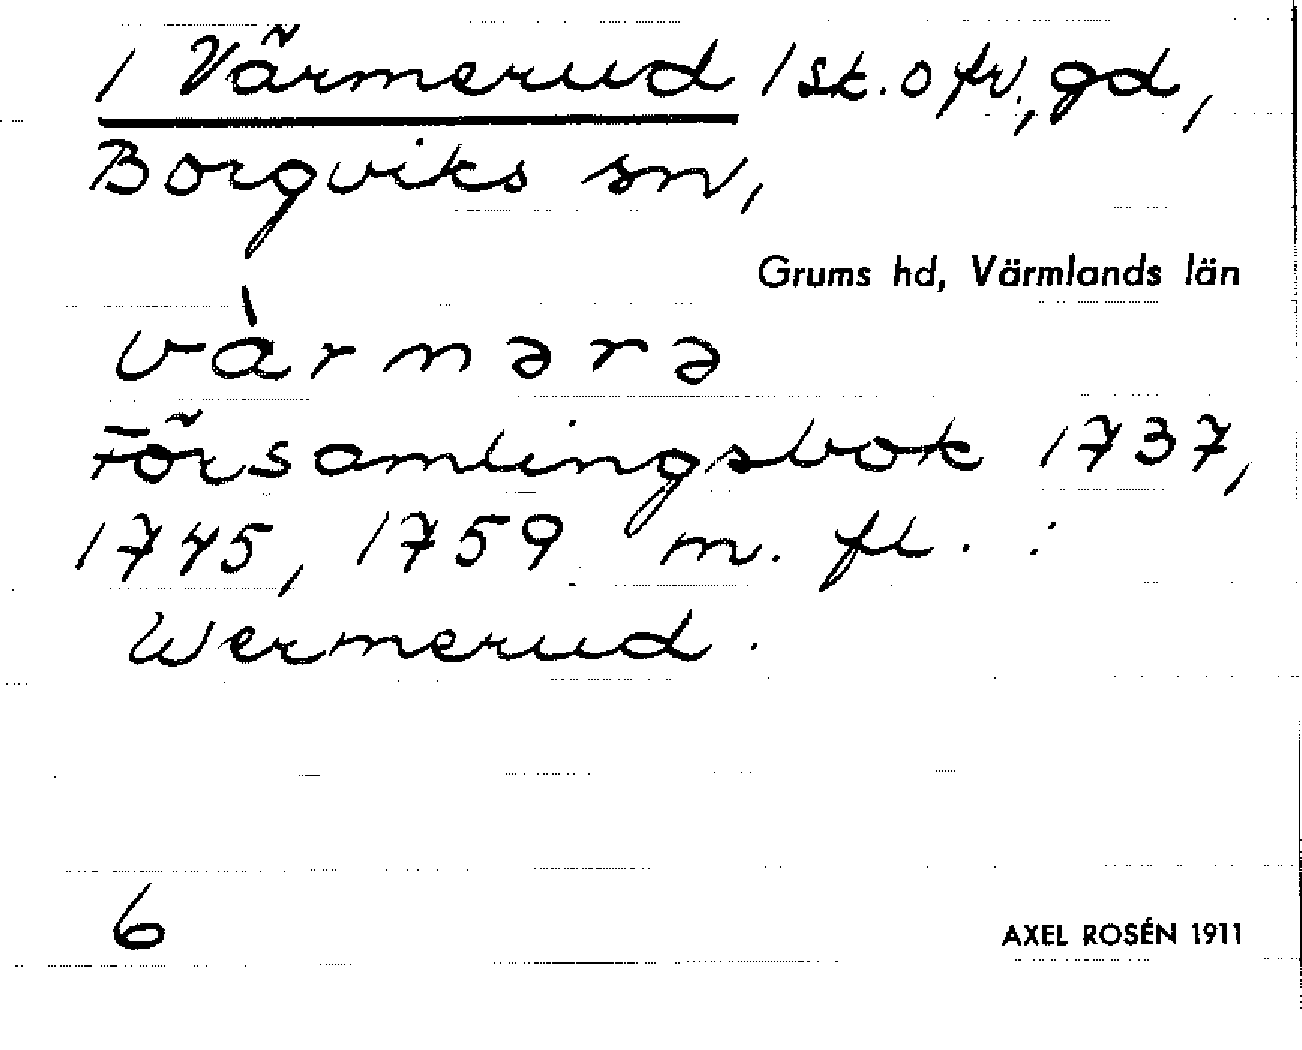 1 Värmerud 1 sk. o fr., gd,
Borgviks sn,
Grums hd, Värmlands län
vàrmərə
Församlingsbok 1737,
1745, 1759 m. fl. :
Wermerud.
6
AXEL ROSÉN 1911